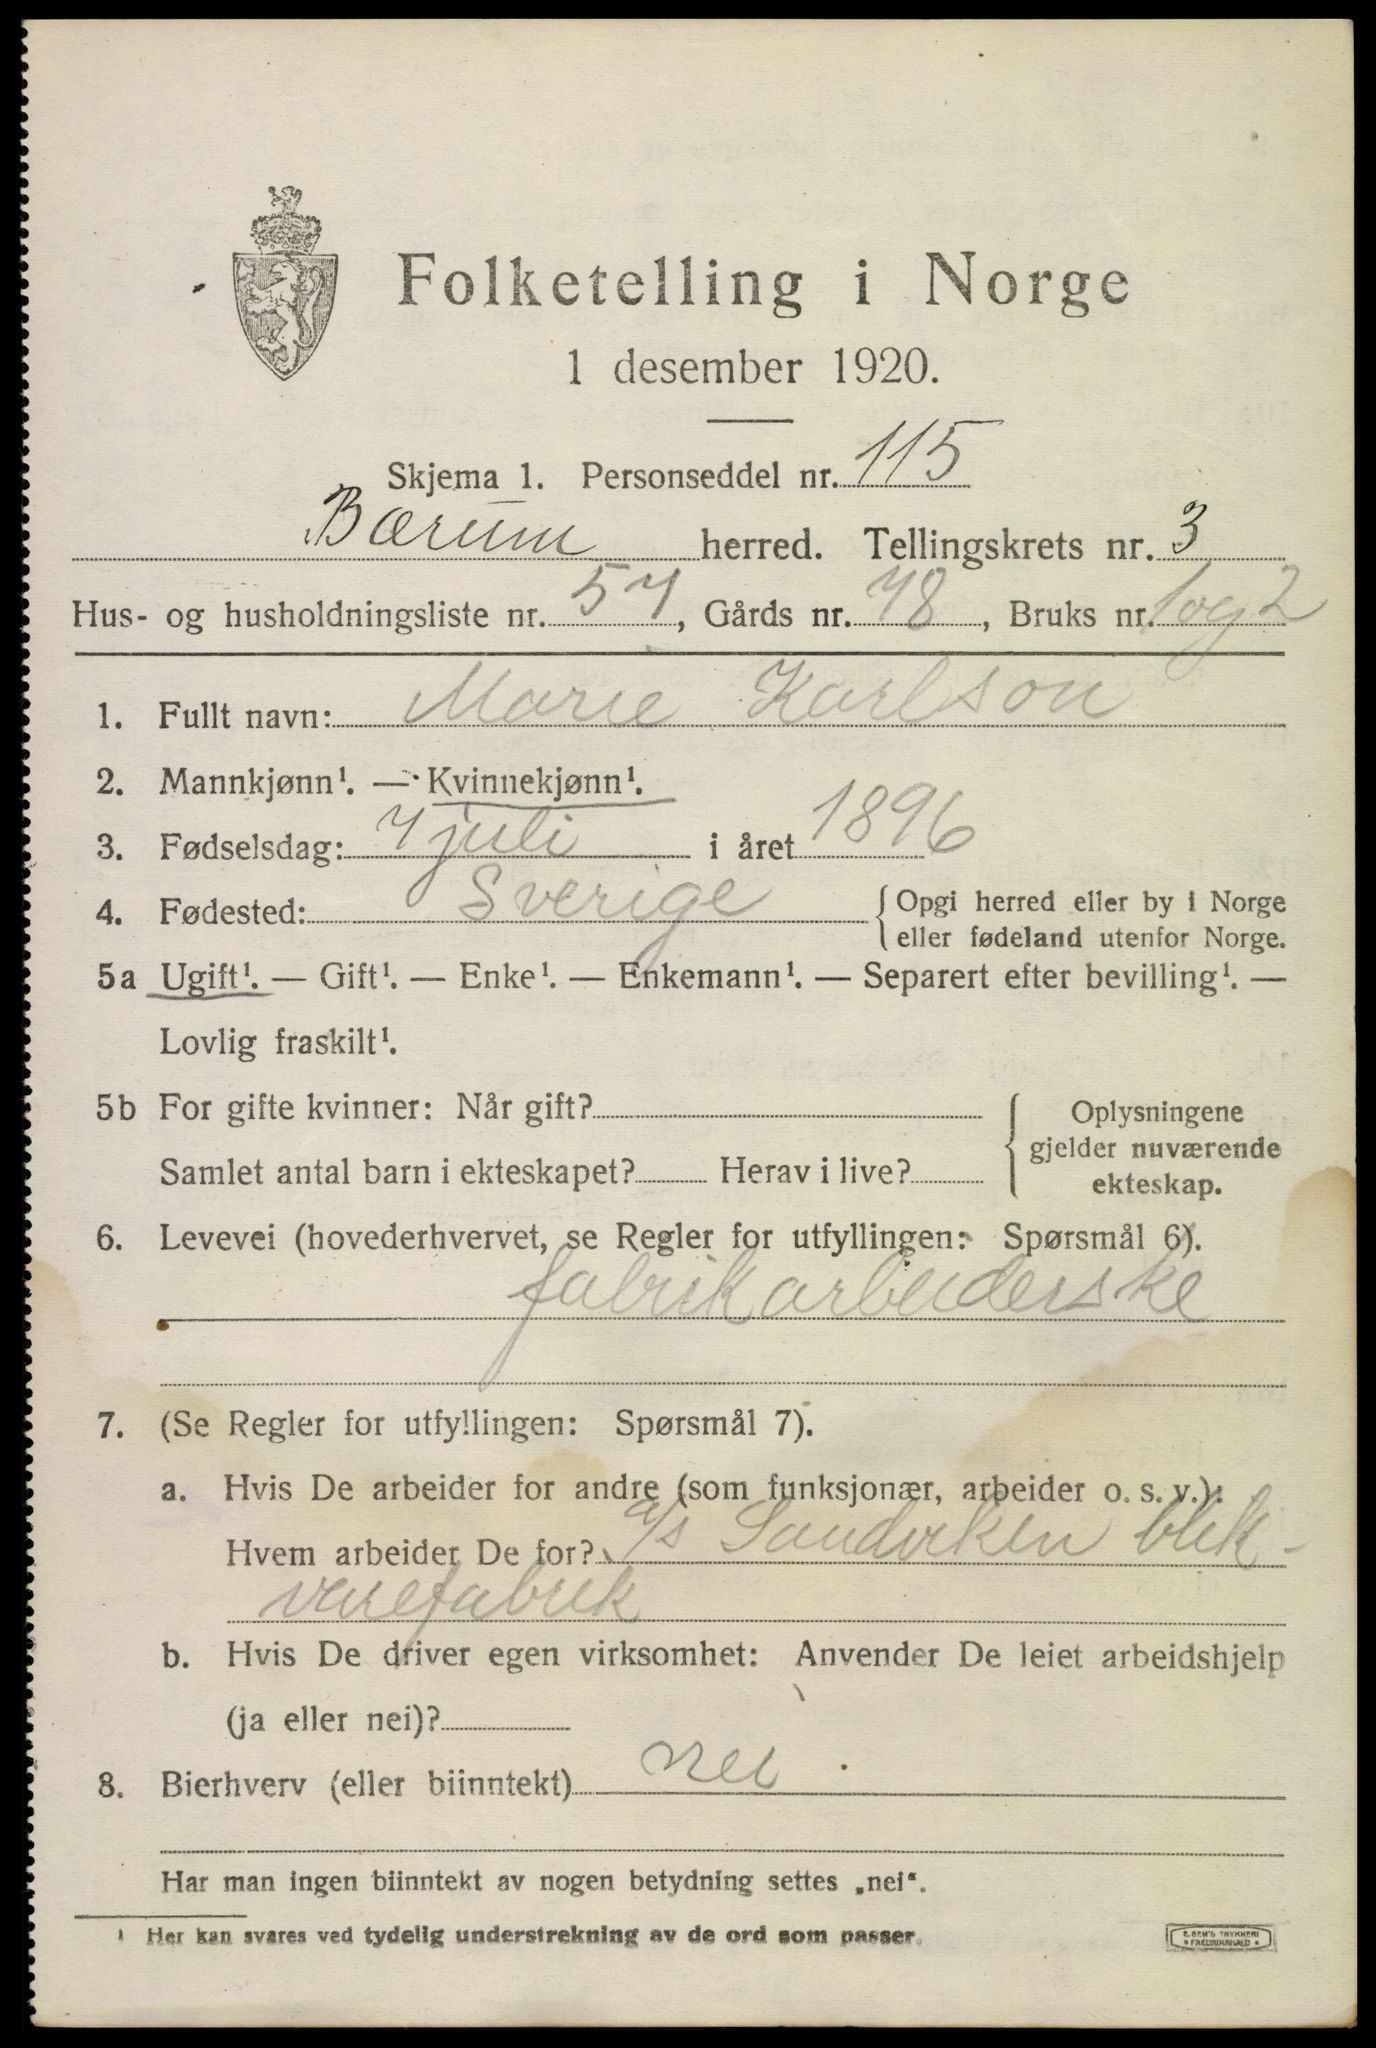 Folketelling i Norge
1 desember 1920.
Skjema 1. Personseddel nr. 115
Bærum herred. Tellingskrets nr. 3
Hus- og husholdningsliste nr. 57, Gårds nr. 78, Bruks nr. 1 og 2
1. Fullt navn: Marie Karlson
2. Mannkjønn¹. — Kvinnekjønn¹.
3. Fødselsdag: 7 juli i året 1896
4. Fødested: Sverige { Opgi herred eller by i Norge
eller fødeland utenfor Norge.
5a Ugift¹. — Gift¹. — Enke¹. — Enkemann¹. — Separert efter bevilling¹. —
Lovlig fraskilt¹.
5b For gifte kvinner: Når gift? { Oplysningene
gjelder nuværende
Samlet antal barn i ekteskapet? Herav i live? ekteskap.
6. Levevei (hovederhvervet, se Regler for utfyllingen: Spørsmål 6).
fabrikarbeiderske
7. (Se Regler for utfyllingen: Spørsmål 7).
a. Hvis De arbeider for andre (som funksjonær, arbeider o. s. v.):
Hvem arbeider De for? a/s Sandviken blik-
varefabrik
b. Hvis De driver egen virksomhet: Anvender De leiet arbeidshjelp
(ja eller nei)?
8. Bierhverv (eller biinntekt) nei
Har man ingen biinntekt av nogen betydning settes „nei“.
¹ Her kan svares ved tydelig understrekning av de ord som passer.
E. SEM'S TRYKKERI
FREDRIKSHALD